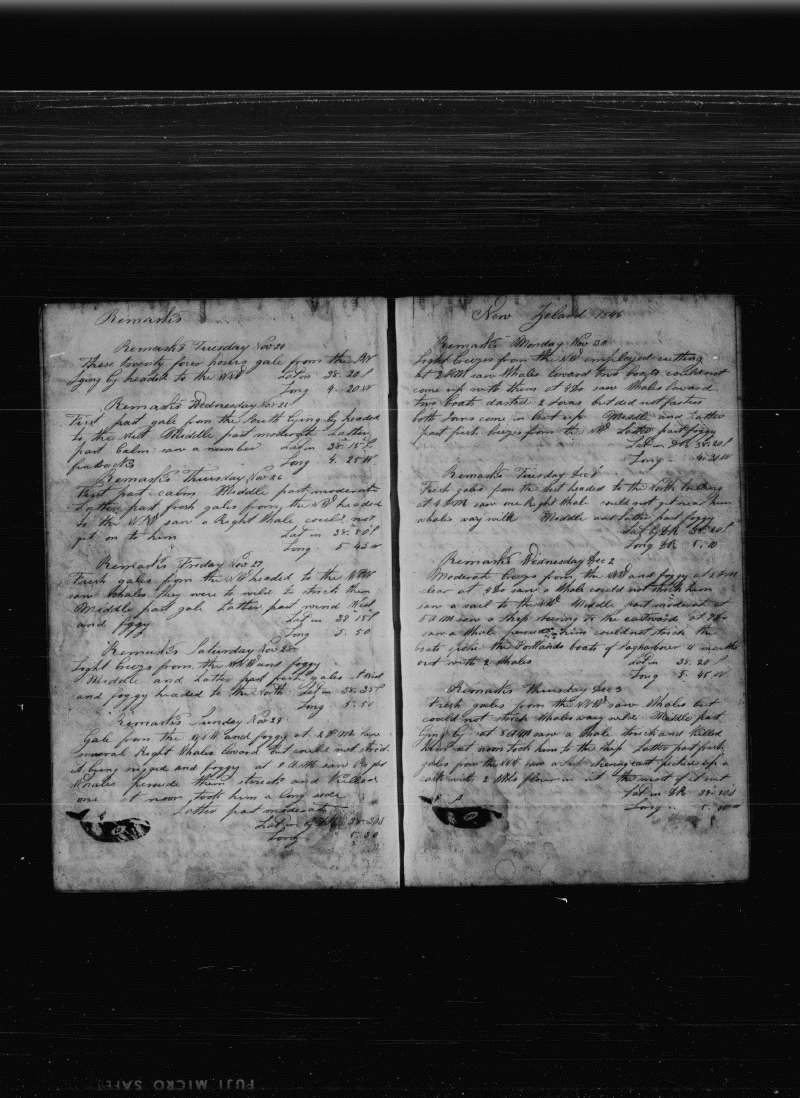 Remarks
Remarks Tuesday Nov 24
These twenty four hours gale from the SW
Lying by headed to the WNW Lat in 38.20 S
Long 4.20 W
Remarks Wednesday Nov 25
First part gale from the South Lying by headed
to the West Middle part moderate Latter
part Calm saw a number Lat in 38.15 S
finbacks Long 4.25 W
Remarks Thursday Nov 26
First part calm Middle part moderate
Latter part fresh gales from the headed
to the saw a Right Whale could not
get on to him Lat in 38.
Long 5.43 W
Remarks Friday Nov 27
Fresh gales from the headed to the
saw Whales they were to wild to strick them
Middle part gale Latter part wind West
and foggy Lat in 39 15 S
Long 5.50
Remarks Saturday Nov 28
Light breezs from the and foggy
Middle and Latter part fresh gales West
and foggy headed to the North Lat in 38.35 S
Long 5.50
Remarks Sunday Nov 29
Gale from the and foggy at 2 PM saw
several Right Whales lowerd but could not strick
it being rugged and foggy at 8 AM saw
Whales persude them struck and killed
one at noon took him a long side
Latter part moderate
Lat in by DR 38.30 S
Long 5.30
New Zeland 1846
Remarks Monday Nov 30
Light breezes from the NW employed cutting
at 3 PM saw Whales lowerd two boats could not
come up with them at 4 do saw Whales lowerd
two boats darted 2 Irons but did not fasten
both Irons come in bent up Middle and Latter
part fresh breezes from the Latter part foggy
Lat in DR 38.20 S
Long 4.31 W
Remarks Tuesday Dec 1
Fresh gales from the headed to the North
at 4 PM saw one Right Whale could not get near him
whales vary wild Middle and latter part foggy
Lat by DR 38.20 S
Long DR 5.10
Remarks Wednesday Dec 2
Moderate breezs from the and foggy at 2 PM
clear at 4 do saw a Whale could not strick him
saw a sail to the Middle part moderate at
5 AM saw a ship steering to the eastward at 7 do
saw a Whale persude him could not strick the
boats the Portlands boats of Sagharbour 4 months
out with 2 Whales Lat in 38.20 S
Long 5.45 W
Remarks Thursday Dec 3
Fresh gales from the saw Whales but
could not strick Whales vary wild Middle part
lying by at 8 AM saw a Whale struck and killed
him at noon took him to the ship Latter part fresh
gales from the saw a ship steering east picked up a
cask with 2 bbls flour in it the most of it wet
Lat in DR
Long 5.
FUJI MICRO SAFE